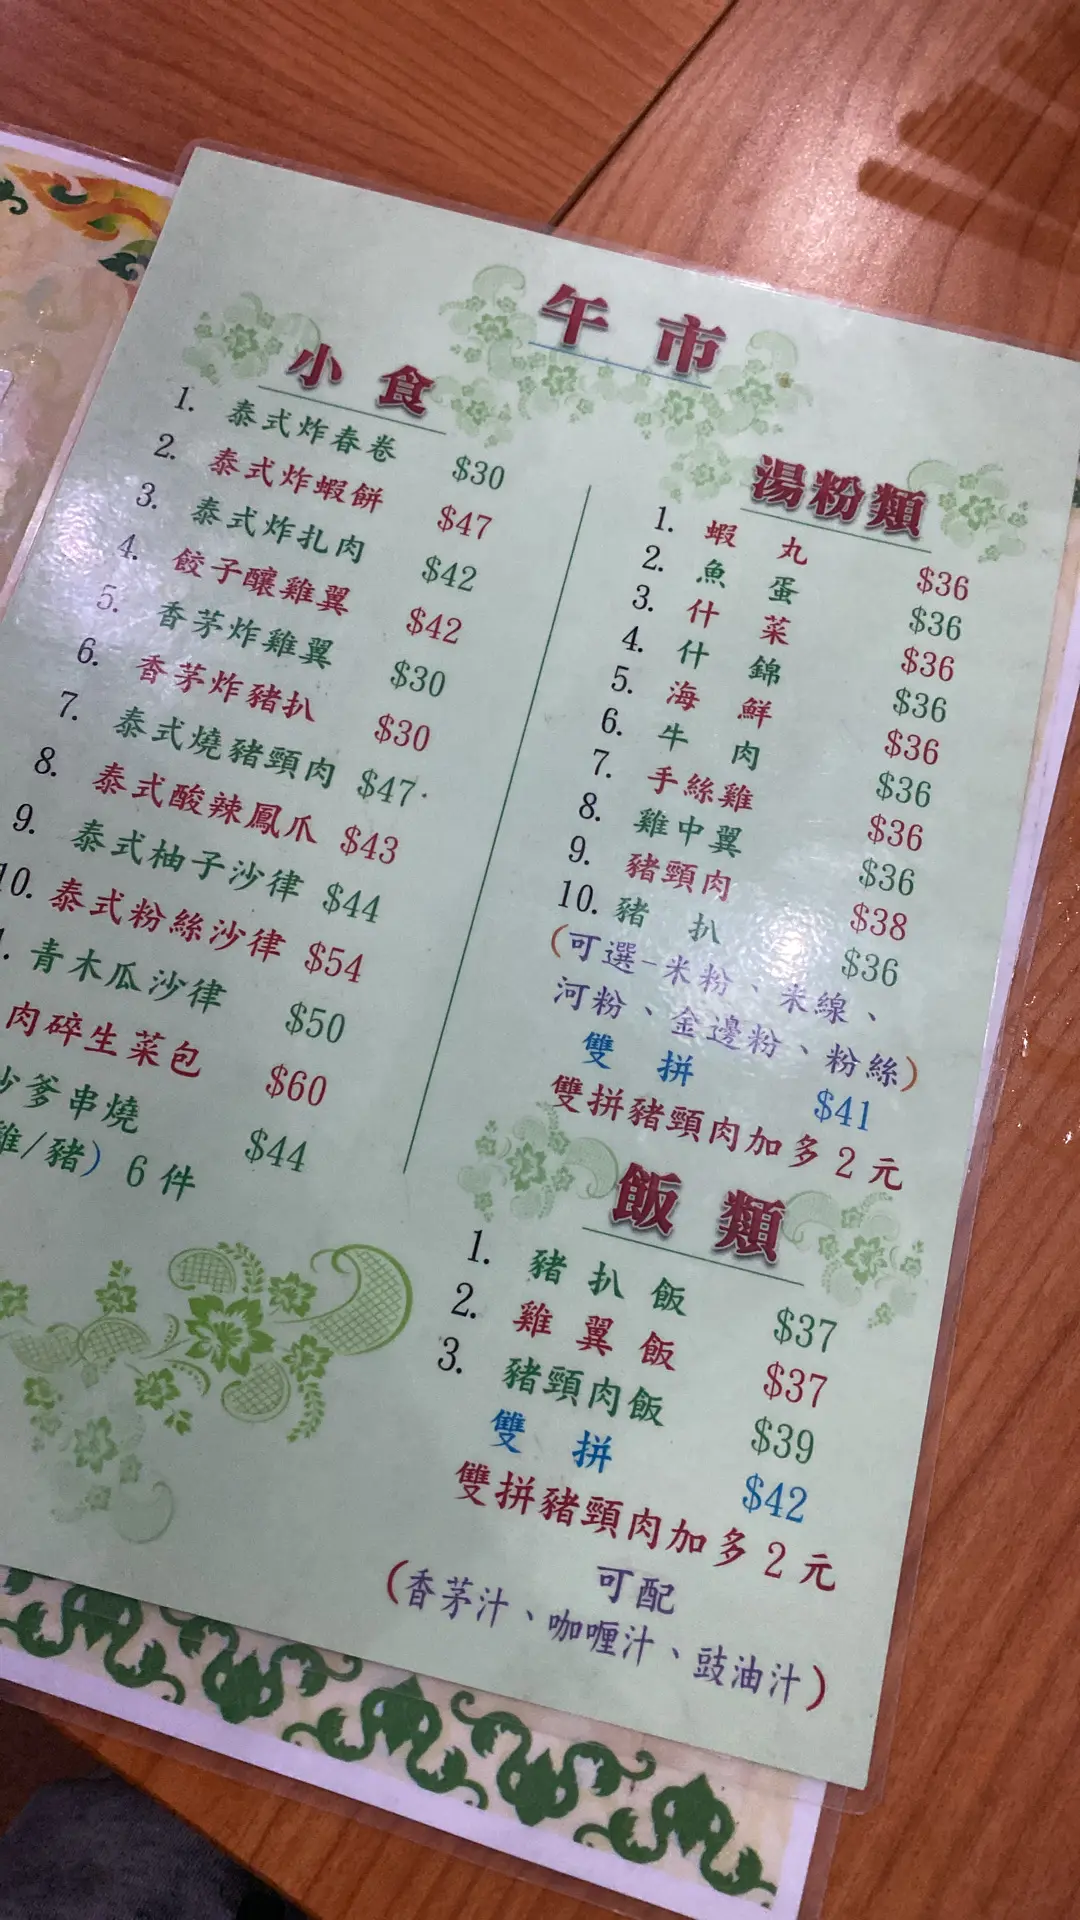 午市
小食
1. 泰式炸春卷 $30
2. 泰式炸蝦餅 $47
3. 泰式炸扎肉 $42
4. 餃子釀雞翼 $42
5. 香茅炸雞翼 $30
6. 香茅炸豬扒 $30
7. 泰式燒豬頸肉 $47
8. 泰式酸辣鳳爪 $43
9. 泰式柚子沙律 $44
10. 泰式粉絲沙律 $54
. 青木瓜沙律 $50
肉碎生菜包 $60
沙爹串燒 $44
雞/豬) 6 件
湯粉類
1. 蝦丸 $36
2. 魚蛋 $36
3. 什菜 $36
4. 什錦 $36
5. 海鮮 $36
6. 牛肉 $36
7. 手絲雞 $36
8. 雞中翼 $36
9. 豬頸肉 $38
10. 豬扒 $36
(可選-米粉、米線、
河粉、金邊粉、粉絲)
雙拼 $41
雙拼豬頸肉加多2元
飯類
1. 豬扒飯 $37
2. 雞翼飯 $37
3. 豬頸肉飯 $39
雙拼 $42
雙拼豬頸肉加多2元
可配
(香茅汁、咖喱汁、豉油汁)